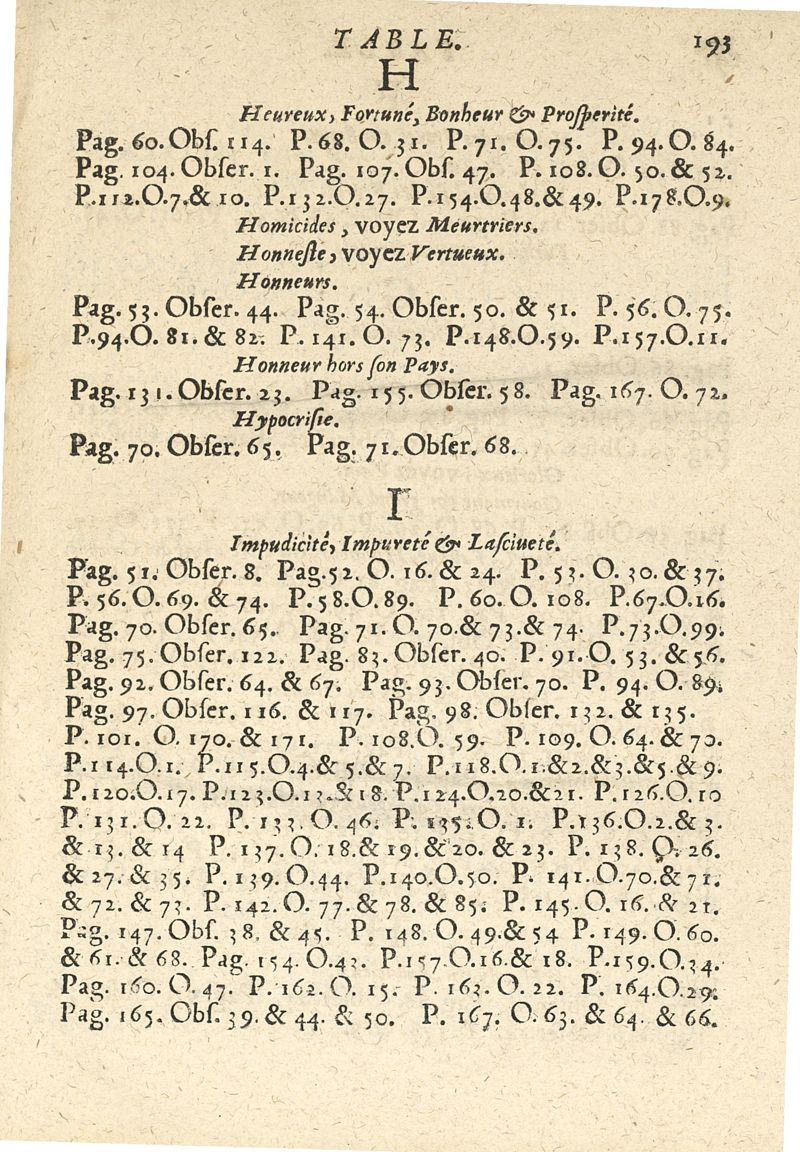 TABLE. 193
H
Heureux, Fortuné, Bonheur & Proſperité.
Pag. 60. Obſ. 114. P. 68. O. 31. P. 71. O. 75. P. 94. O. 84.
Pag. 104. Obſer. 1. Pag. 107. Obſ. 47. P. 108. O. 50. & 52.
P.112.O.7.& 10. P.132.O.27. P.154.O.48.& 49. P.178.O.9.
Homicides, voyez Meurtriers.
Honneſte, voyez Vertueux.
Honneurs.
Pag. 53. Obſer. 44. Pag. 54. Obſer. 50. & 51. P. 56. O. 75.
P.94.O. 81. & 82. P. 141. O. 73. P.148.O.59. P.157.O.11.
Honneur hors ſon Pays.
Pag. 131. Obſer. 23. Pag. 155. Obſer. 58. Pag. 167. O. 72.
Hypocriſie.
Pag. 70. Obſer. 65. Pag. 71. Obſer. 68.
I
Impudicité, Impureté & Laſciueté.
Pag. 51. Obſer. 8. Pag.52. O. 16. & 24. P. 53. O. 30. & 37.
P. 56. O. 69. & 74. P. 58.O. 89. P. 60. O. 108. P.67.O.16.
Pag. 70. Obſer. 65. Pag. 71. O. 70.& 73.& 74. P.73.O.99.
Pag. 75. Obſer. 122. Pag. 83. Obſer. 40. P. 91. O. 53. & 56.
Pag. 92. Obſer. 64. & 67. Pag. 93. Obſer. 70. P. 94. O. 89.
Pag. 97. Obſer. 116. & 117. Pag. 98. Obſer. 132. & 135.
P. 101. O. 170. & 171. P. 108.O. 59. P. 109. O. 64. & 70.
P.114.O.1. P.115.O.4.& 5.& 7. P.118.O.1.&2.&3.&5.& 9.
P.120.O.17. P.123.O.13.& 18. P.124.O.20.&21. P.126.O.10
P. 131. O. 22. P. 133. O. 46. P. 135. O. 1. P.136.O.2.& 3.
& 13. & 14 P. 137. O. 18.& 19.& 20. & 23. P. 138. O. 26.
& 27. & 35. P. 139. O.44. P.140.O.50. P. 141. O.70.& 71.
& 72. & 73. P. 142. O. 77. & 78. & 85. P. 145. O. 16. & 21.
Pag. 147. Obſ. 38. & 45. P. 148. O. 49.& 54 P. 149. O. 60.
& 61. & 68. Pag. 154. O.43. P.157.O.16.& 18. P.159.O.34.
Pag. 160. O. 47. P. 162. O. 15. P. 163. O. 22. P. 164.O.29.
Pag. 165. Obſ. 39. & 44. & 50. P. 167. O. 63. & 64. & 66.